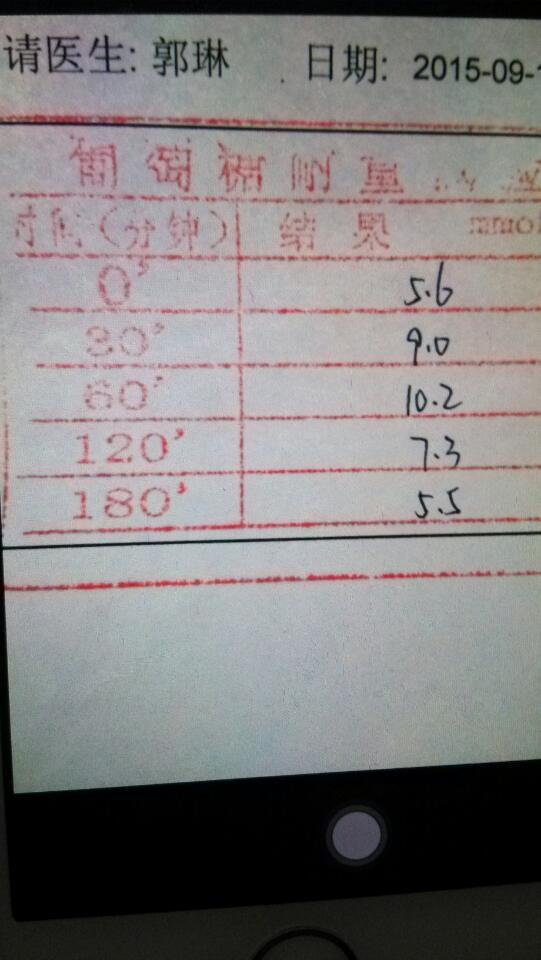 请医生: 郭琳 日期: 2015-09-
葡萄糖耐量
时间(分钟) 结果 mmol
0' 5.6
30' 9.0
60' 10.2
120' 7.3
180' 5.5